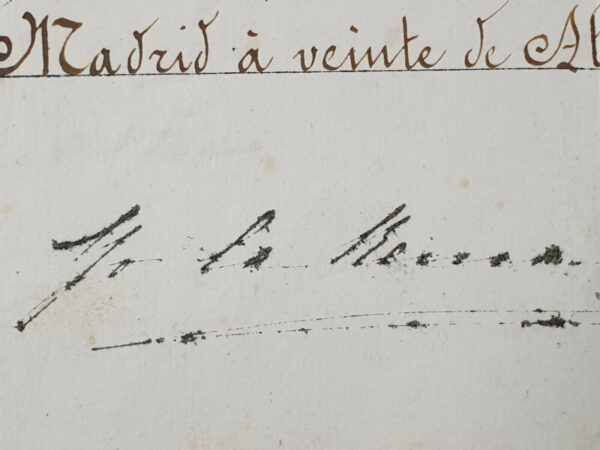 Madrid à veinte de Ab
Yo la Reina